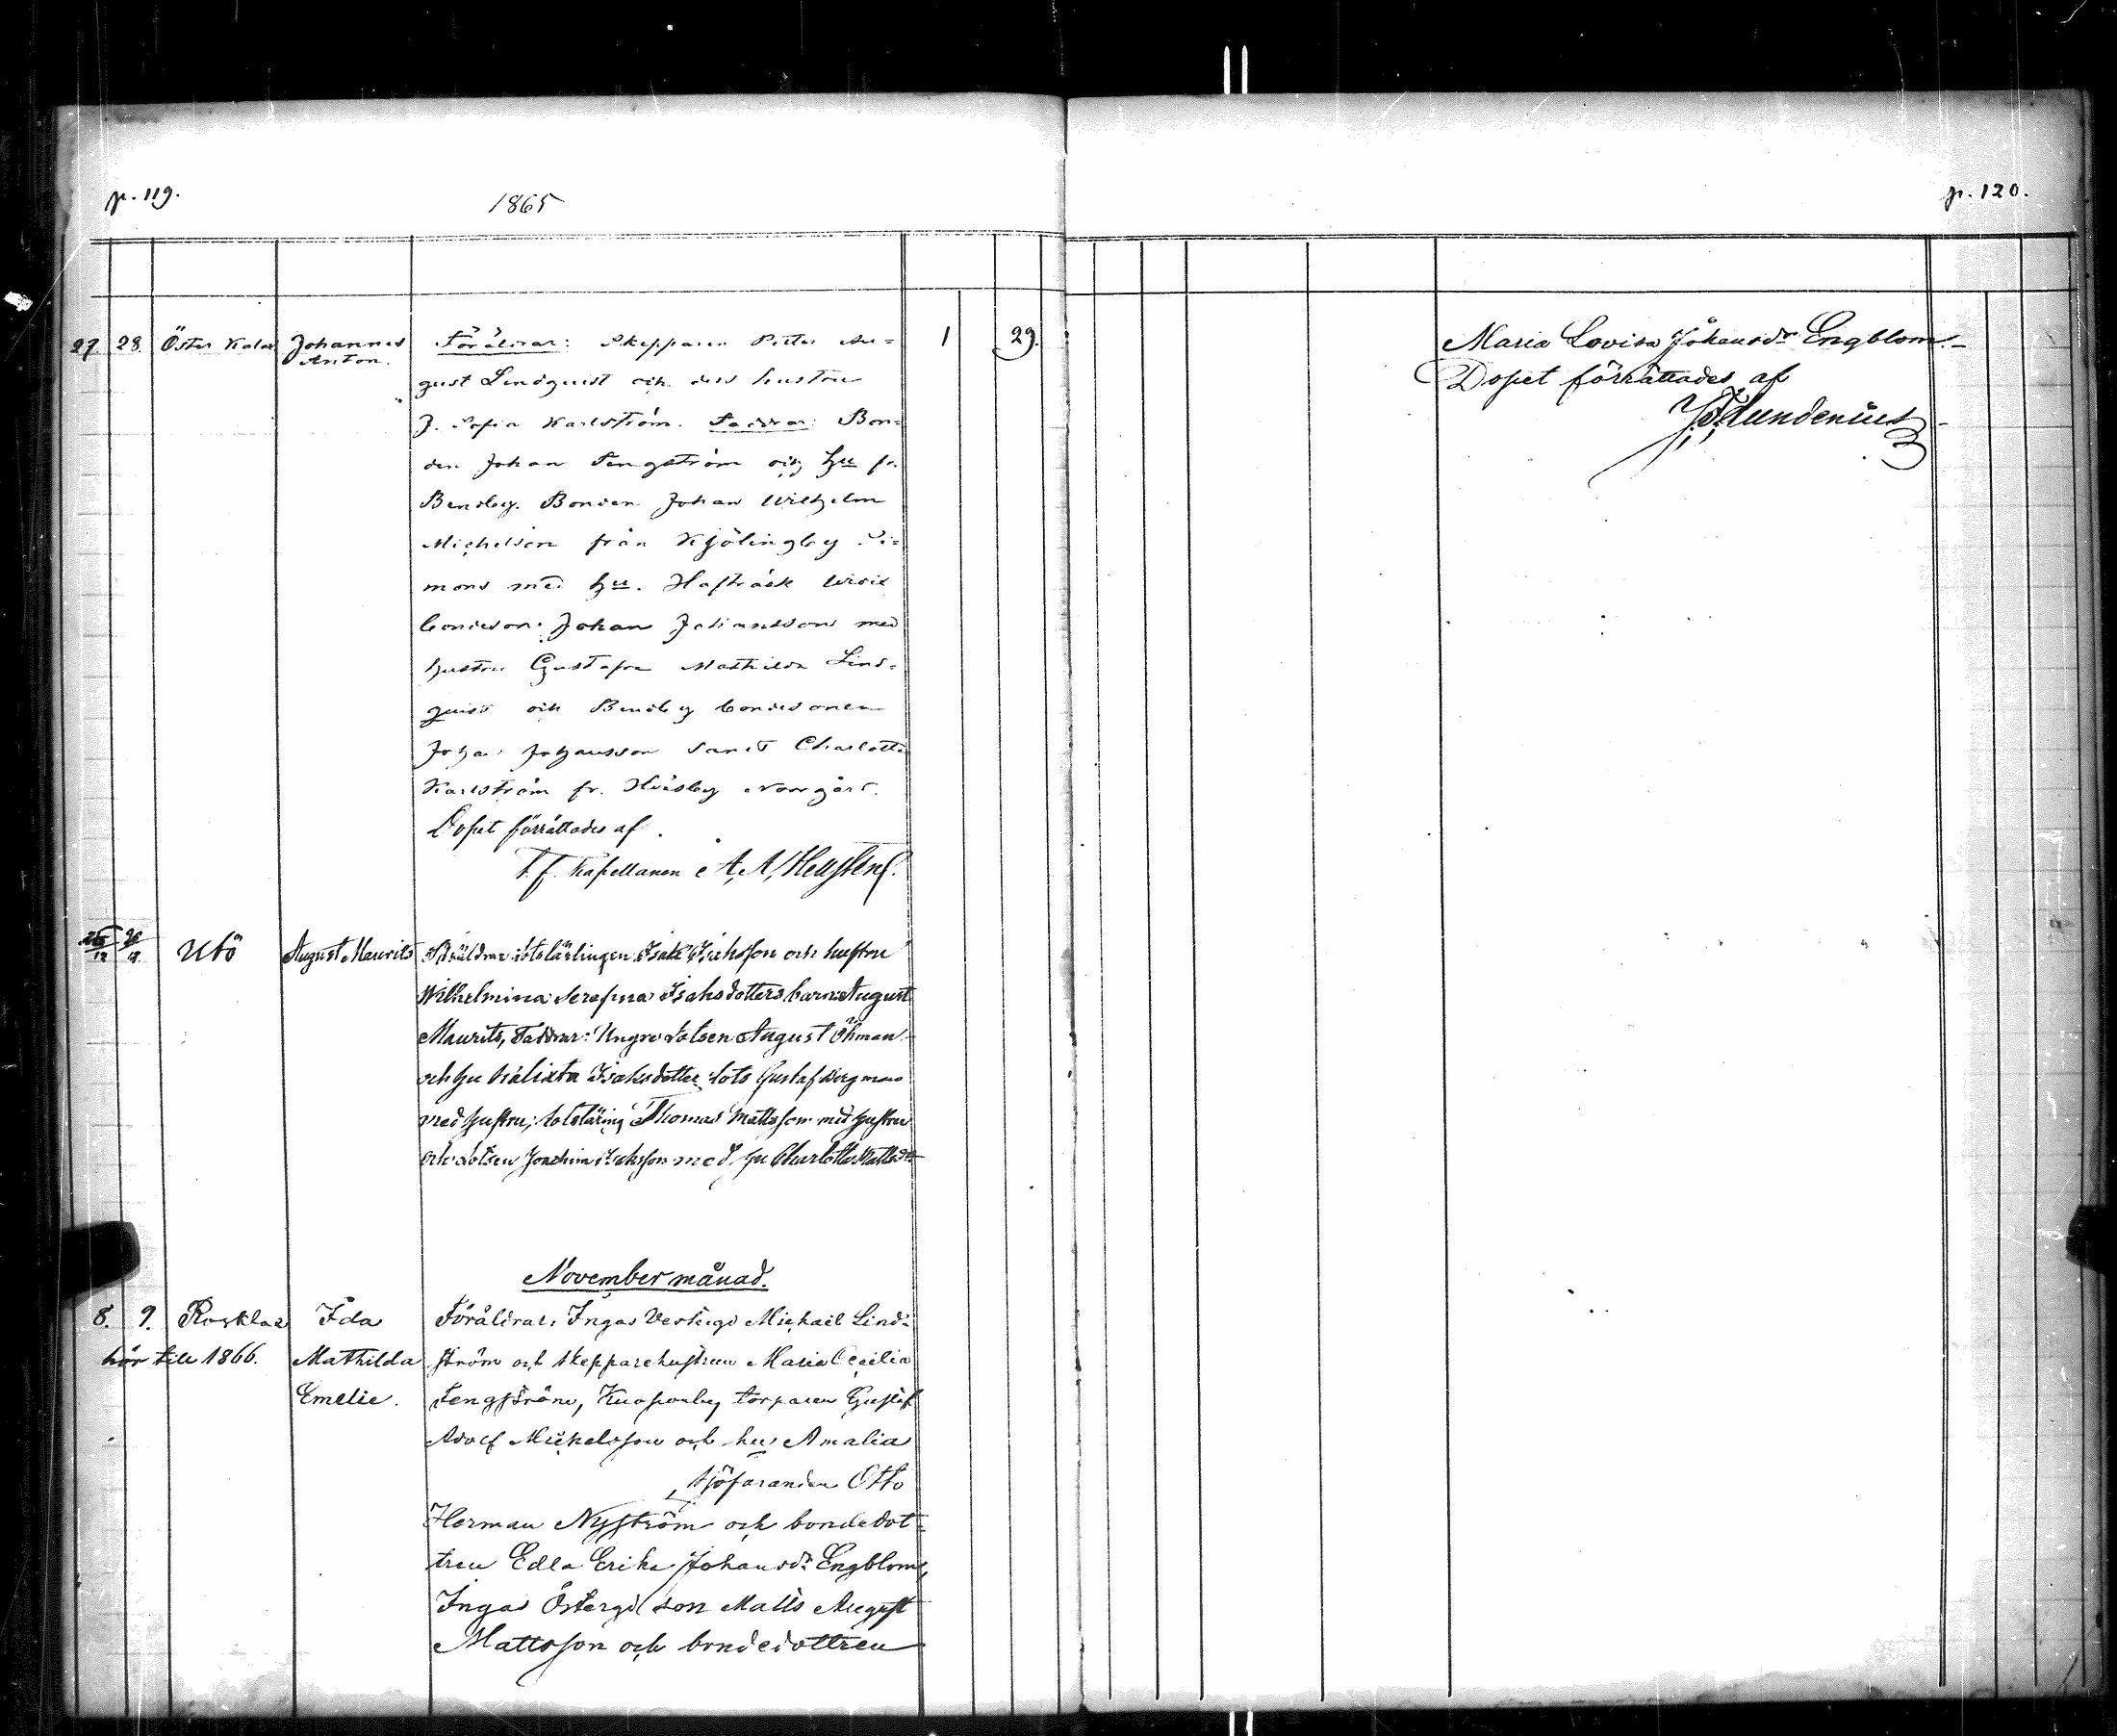 p. 119.
1865
27. 28. Öster Kalax Johannes Anton. Föräldrar: Skepparen Petter Au=
gust Lindquist och dess hustru
J. Sofia Karlström. Faddrar: Bon=
den Johan Tengström och hu fr.
Bendby. Bonden Johan Wilhelm
Michelson från Kjölingby Si=
mons med hu. Hafträsk
bondeson Johan Johansson med
hustru Gustafva Mathilda Lind=
quist och Bendby bondesonen
Johan Johansson samt Charlotta
Karlström fr. Norrgård.
Dopet förrättades af
T. f. Kapellanen A. A.
1 29.
Utö August Maurits Föräldrar: lotslärlingen Isak Isaksson och hustru
Wilhelmina Serafina Isaksdotters barn August
Maurits, Faddrar: Yngre Lotsen August Öhman
och hu Isaksdotter, lots Gustaf Bergman
med hustru; lotsläring Thomas Mattsson med hustru
och Lotsen Joachim Isaksson med hu Charlotta Mattsdr
November månad.
8. 9. Rosklax Ida Föräldrar: Ingas Vestergd Michael Lind=
hör till 1866. Mathilda ström och skepparehustrun Maria Cecilia
Emelie. Tengström, Knaponby torparen Gustaf
Adolf Mickelsson och hu Amalia
sjöfaranden Otto
Herman Nyström och bondedot=
tren Edla Erika Johansdr Engblom,
Ingas Östergd son Matts August
Mattsson och bondedottren
p. 120.
Maria Lovisa Johansdr Engblom.
Dopet förrättades af
Lundenius